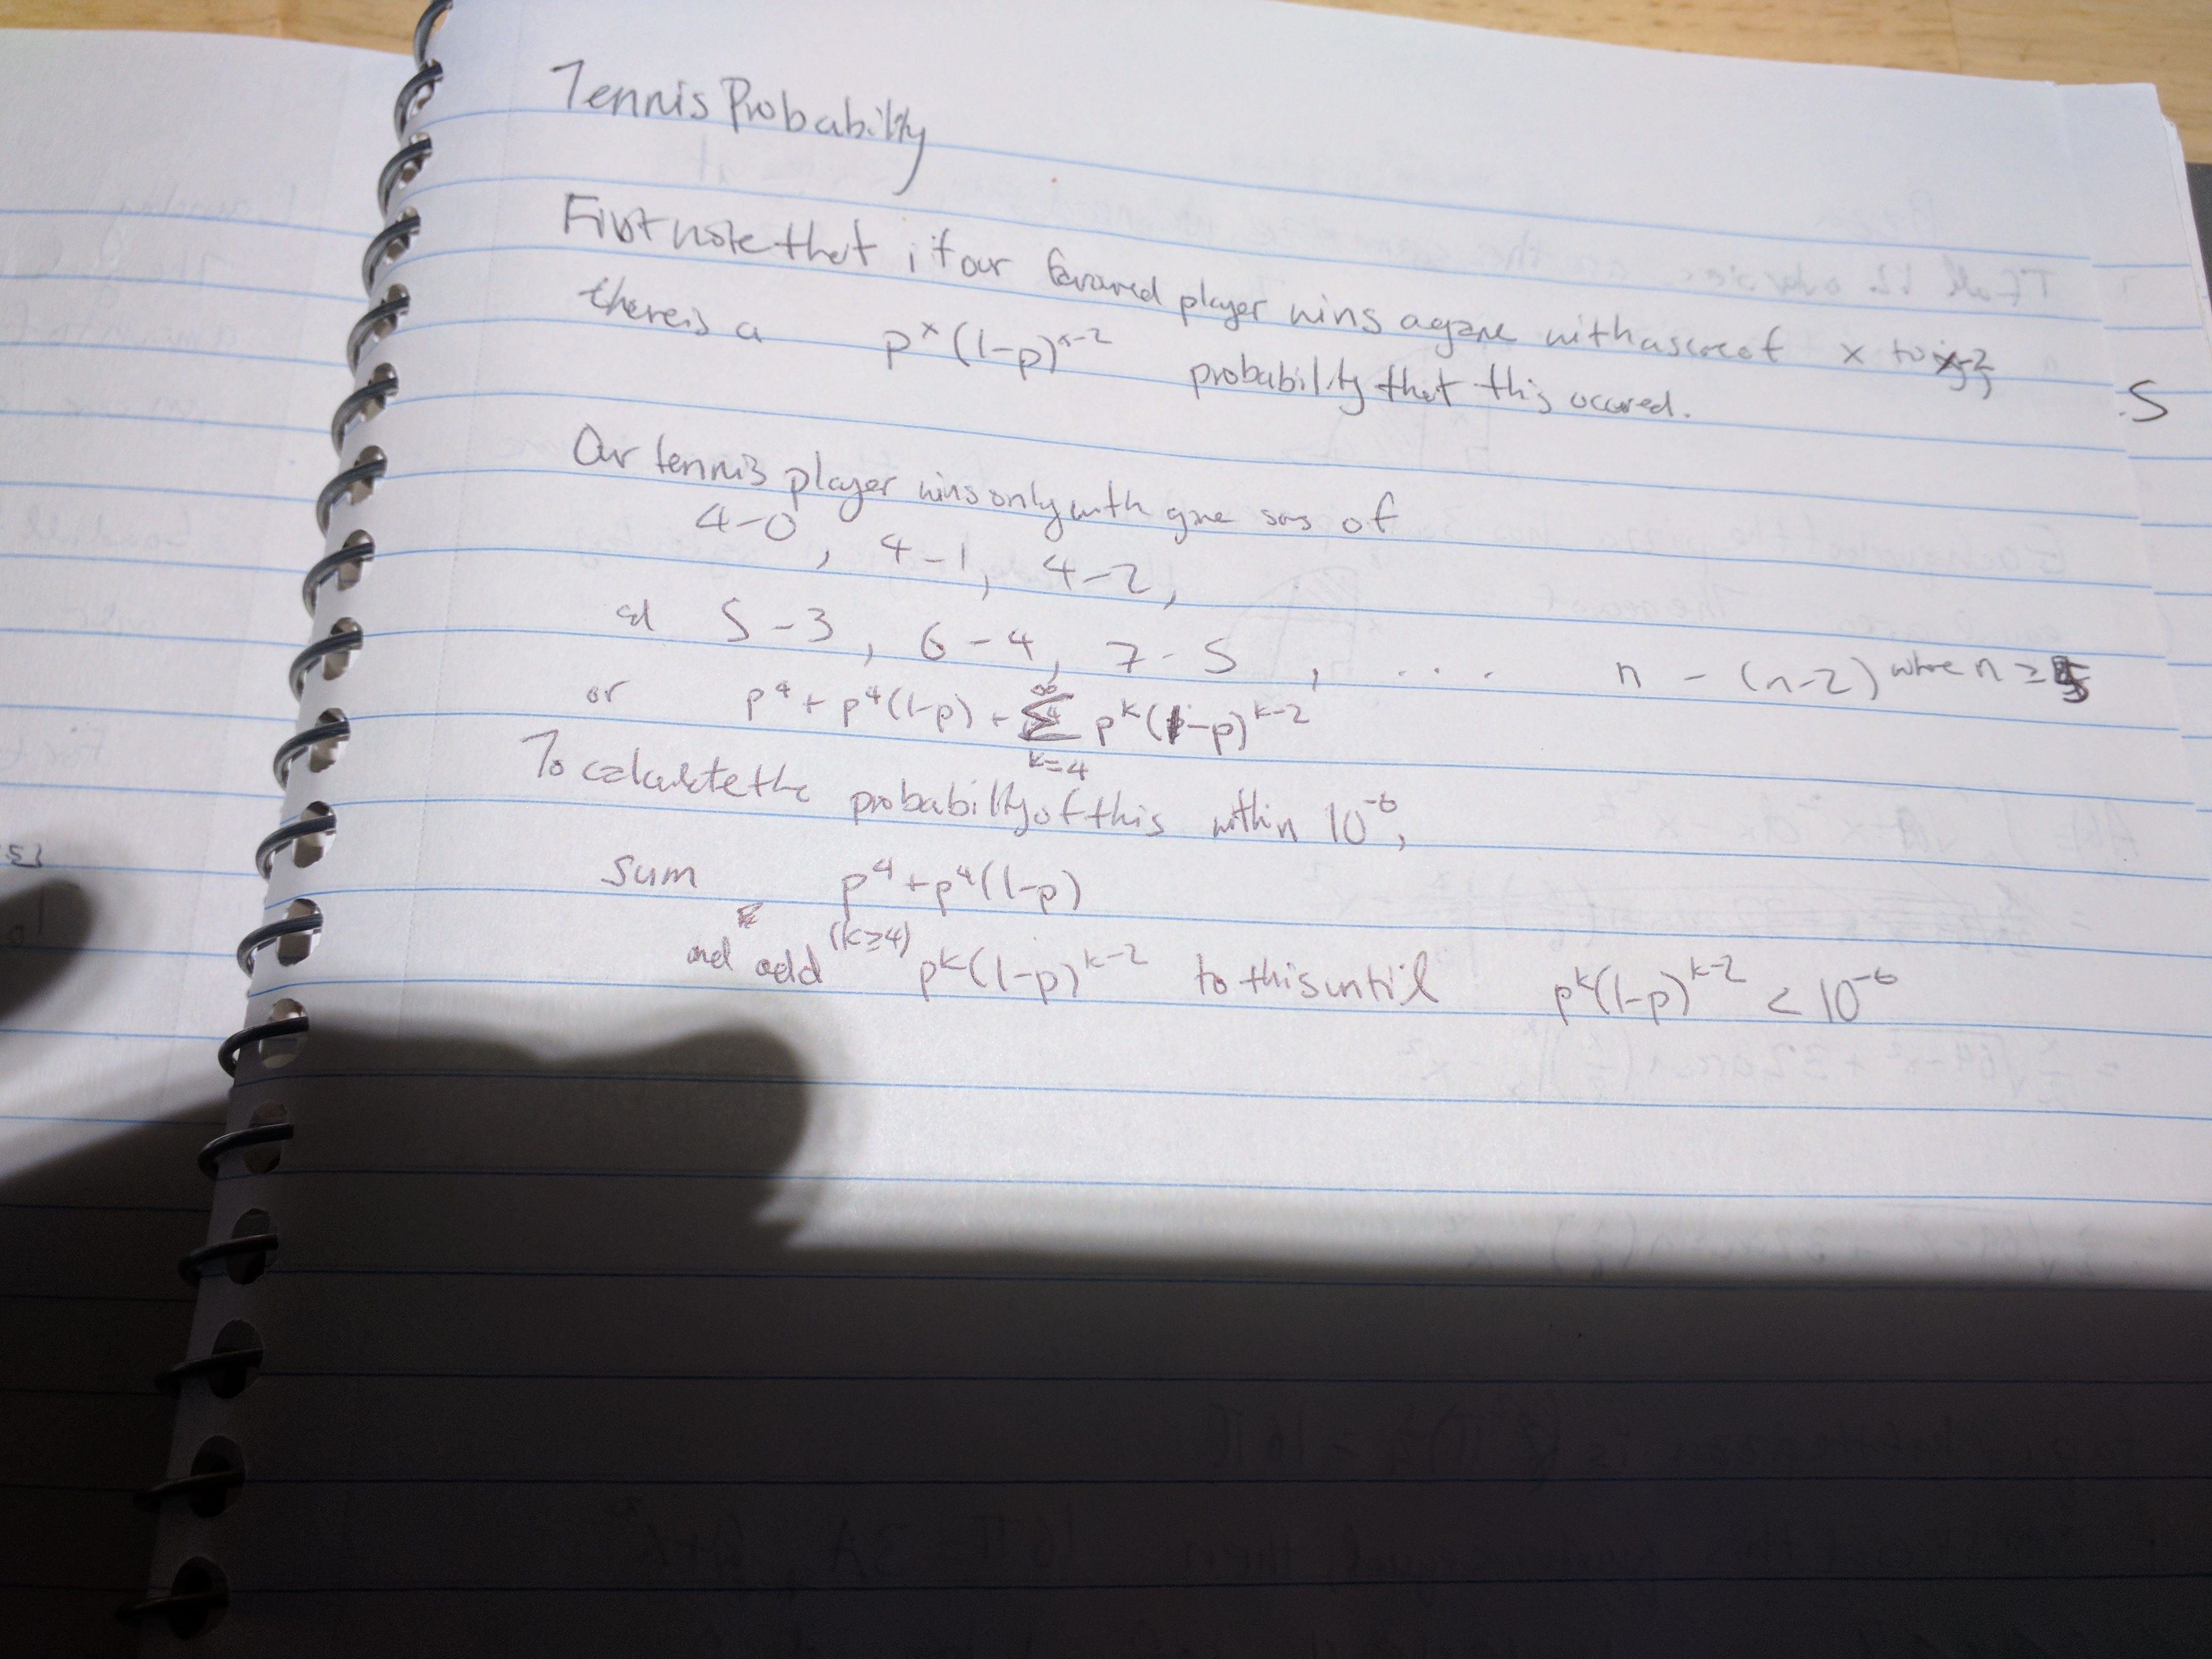 Tennis Probability
First note that if our favoured player wins a game with a score of x to x-2,
there is a p^x (1-p)^{x-2} probability that this occured.
S
Our tennis player wins only with game of
4-0, 4-1, 4-2,
5-3, 6-4, 7-5, ... n - (n-2) where n ≥ 5
or p^4 + p^4(1-p) + ∑_{k=4}^{∞} p^k (1-p)^{k-2}
To calculate the probability of this within 10^{-6},
sum p^4 + p^4(1-p)
and add (k≥4) p^k (1-p)^{k-2} to this until p^k (1-p)^{k-2} < 10^{-6}